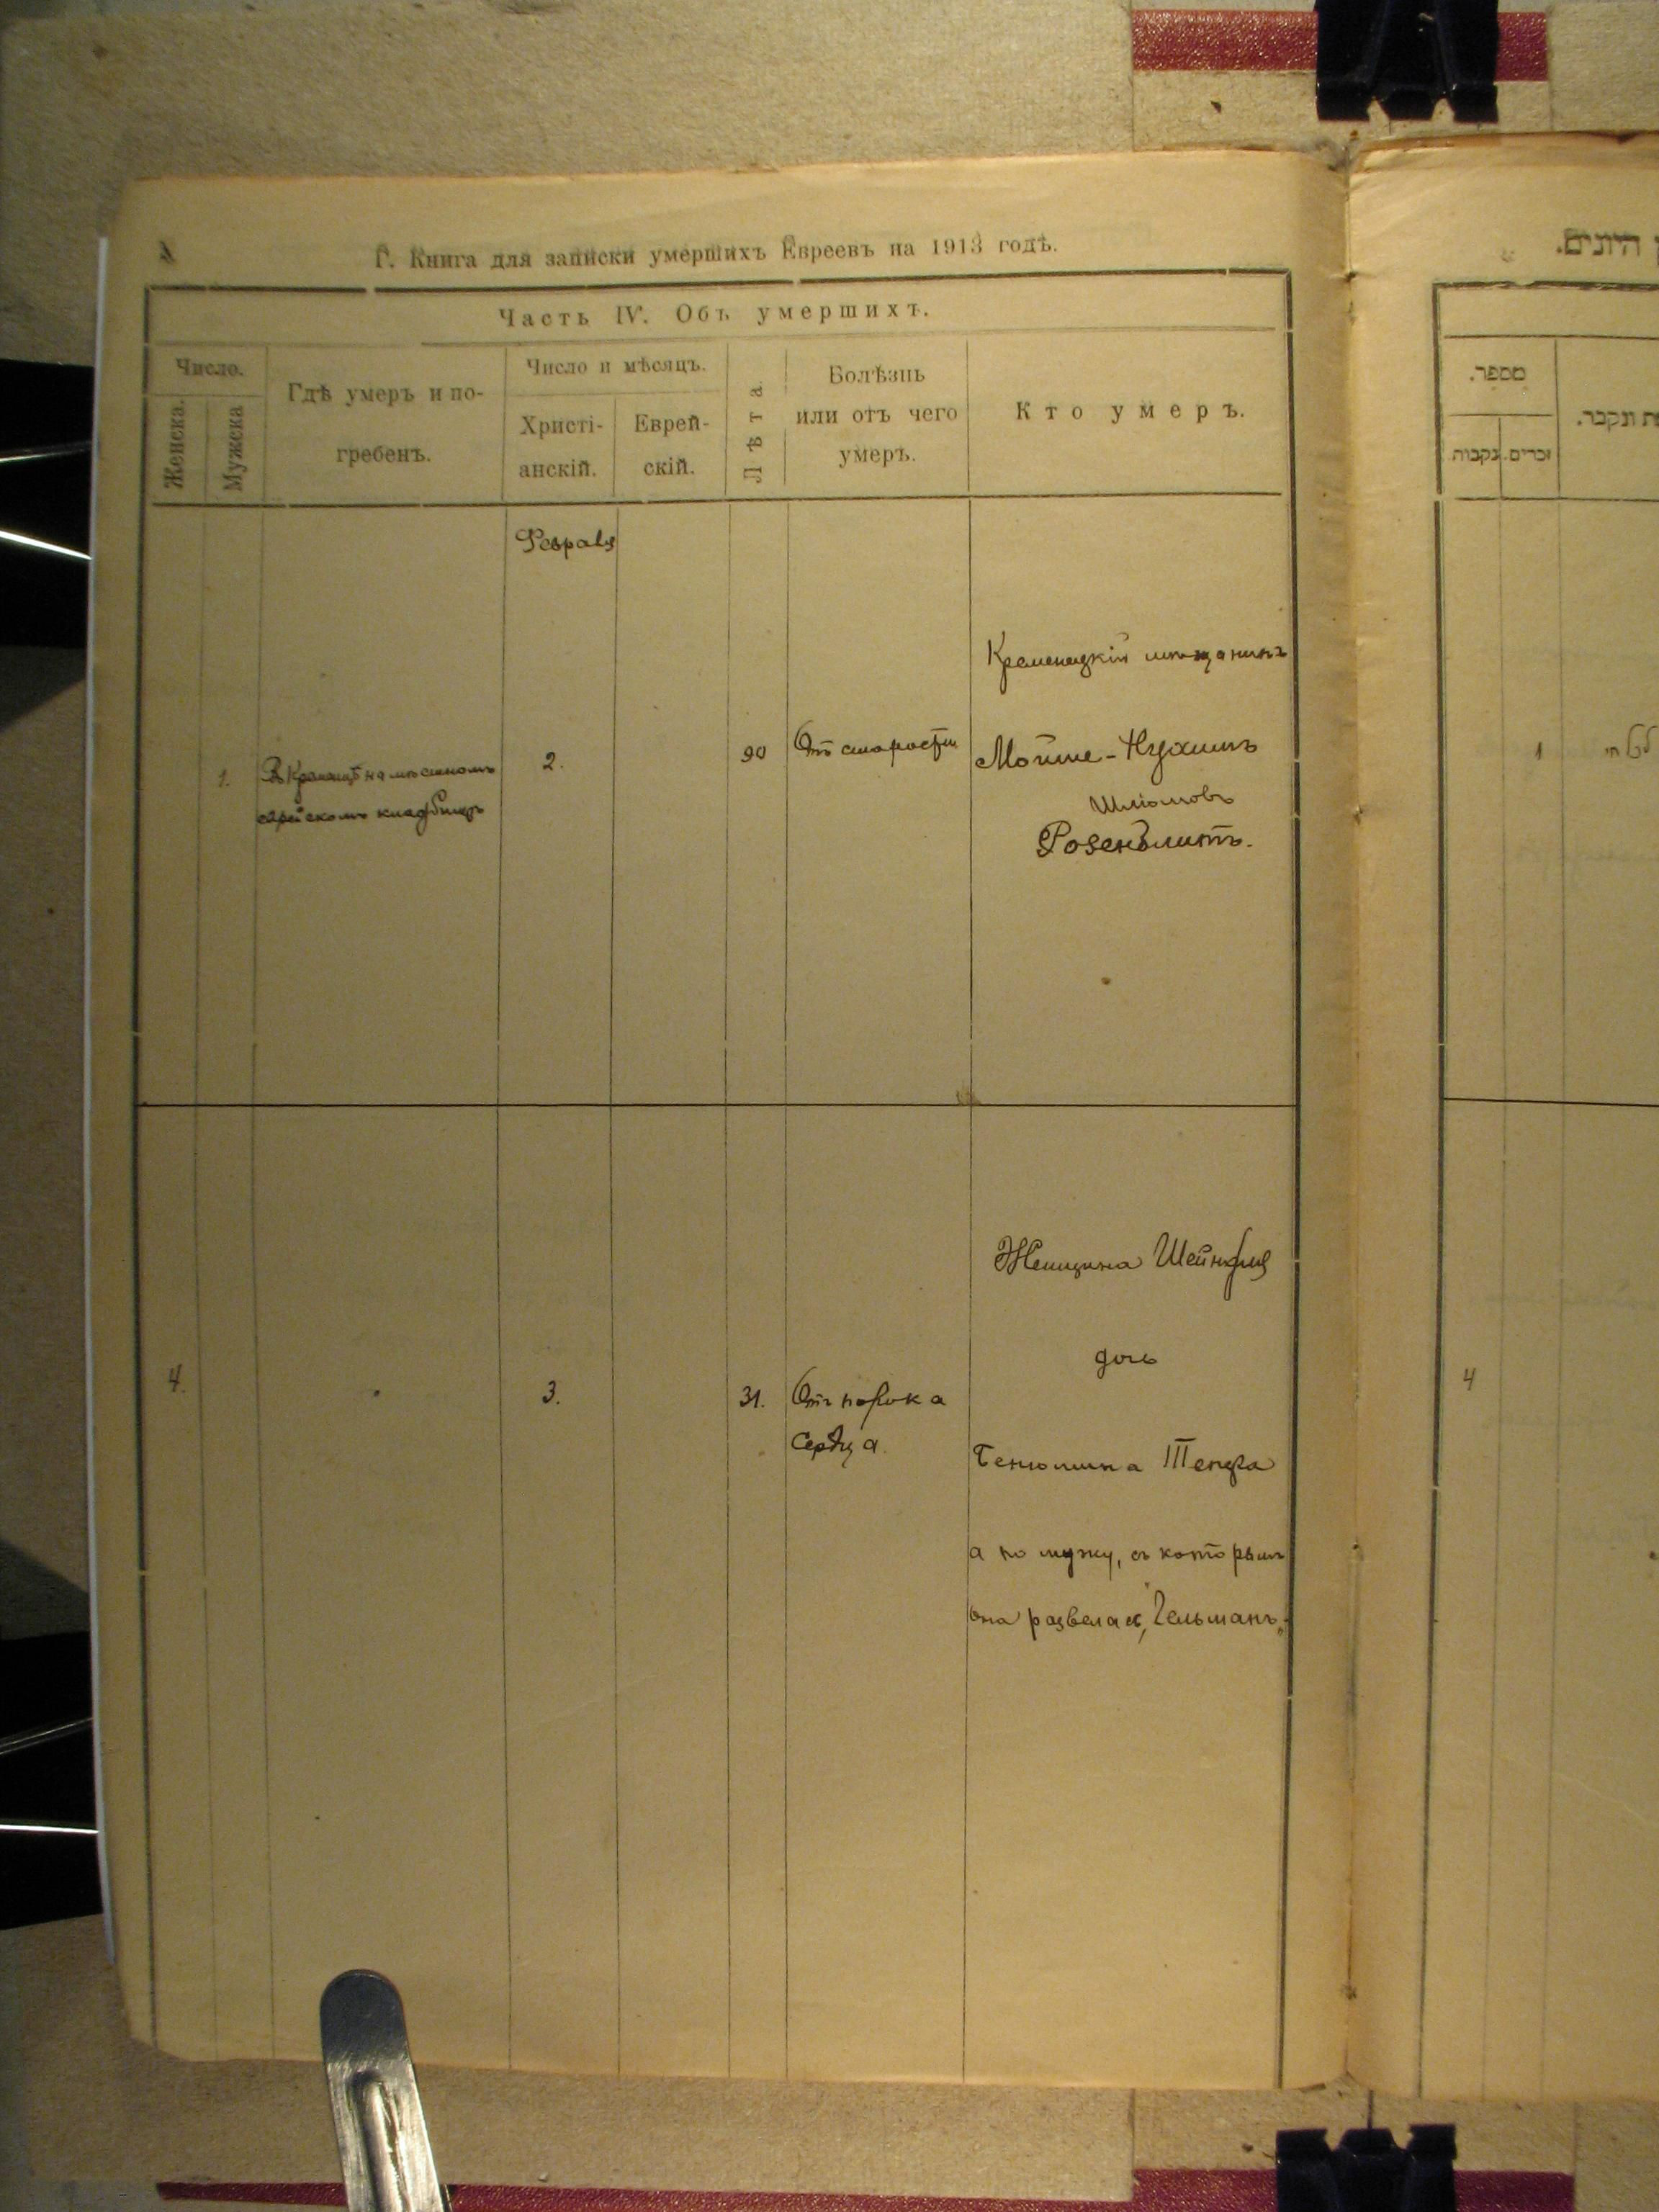 Г. Книга для записки умершихъ Евреевъ на 1913 годъ.
Часть IV. Объ умершихъ.
Число.
Женска.
Мужска
Гдѣ умеръ и по-
гребенъ.
Число и мѣсяцъ.
Христі-
анскій.
Еврей-
скій.
Лѣта.
Болѣзнь
или отъ чего
умеръ.
Кто умеръ.
1.
Въ Кременцѣ на мѣстномъ
еврейскомъ кладбищѣ
2.
90
Отъ старости
Кременецкій мѣщанинъ
Мойше-Нухимъ
Шліомовъ
Розенблитъ.
4.
3.
31.
Отъ порока
сердца
Женщина
дочь
Бенюмина
а по мужу, съ которымъ
она развелась, Гельманъ
היונים.
מספר.
זכרים.
נקבות.
ונקבר.
1
4